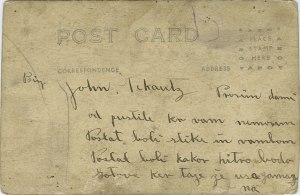 POST CARD
PLACE
STAMP
HERE
CORRESPONDENCE
ADDRESS
John. Schautz Prosim dami
od pustite ko vam nemorem
Poslat boli slike in vam bom
Poslal boli kakor hitro bodo
Gotove ker taje je usa zamag
na